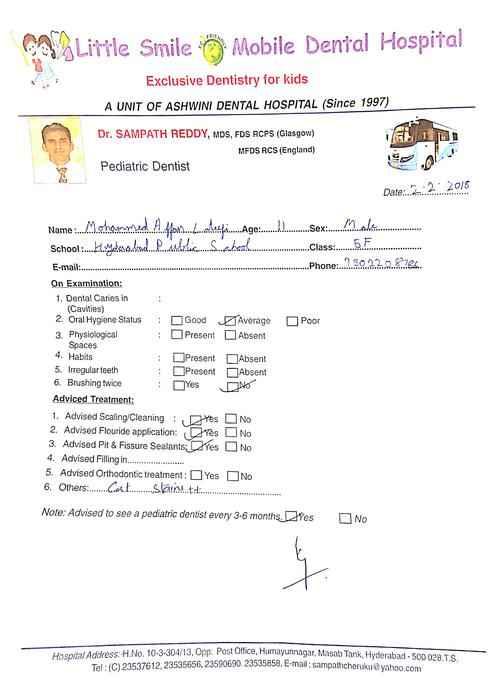 Little Smile ECO FRIENDLY Mobile Dental Hospital
Exclusive Dentistry for kids
A UNIT OF ASHWINI DENTAL HOSPITAL (Since 1997)
Dr. SAMPATH REDDY, MDS, FDS RCPS (Glasgow)
MFDS RCS (England)
Pediatric Dentist
Date: 2-2-2018
Name: Mohammed Affan Age: 11 Sex: Male
School: Hyderabad Public School Class: 5F
E-mail: Phone:
On Examination:
1. Dental Caries in :
(Cavities)
2. Oral Hygiene Status : Good Average Poor
3. Physiological : Present Absent
Spaces
4. Habits : Present Absent
5. Irregular teeth : Present Absent
6. Brushing twice : Yes No
Adviced Treatment:
1. Advised Scaling/Cleaning : Yes No
2. Advised Flouride application: Yes No
3. Advised Pit & Fissure Sealants: Yes No
4. Advised Filling in
5. Advised Orthodontic treatment : Yes No
6. Others: Stains ++
Note: Advised to see a pediatric dentist every 3-6 months Yes No
Hospital Address: H.No. 10-3-304/13, Opp: Post Office, Humayunnagar, Masab Tank, Hyderabad - 500 028.T.S.
Tel : (C) 23537612, 23535656, 23590690. 23535858, E-mail : sampathcheruku@yahoo.com